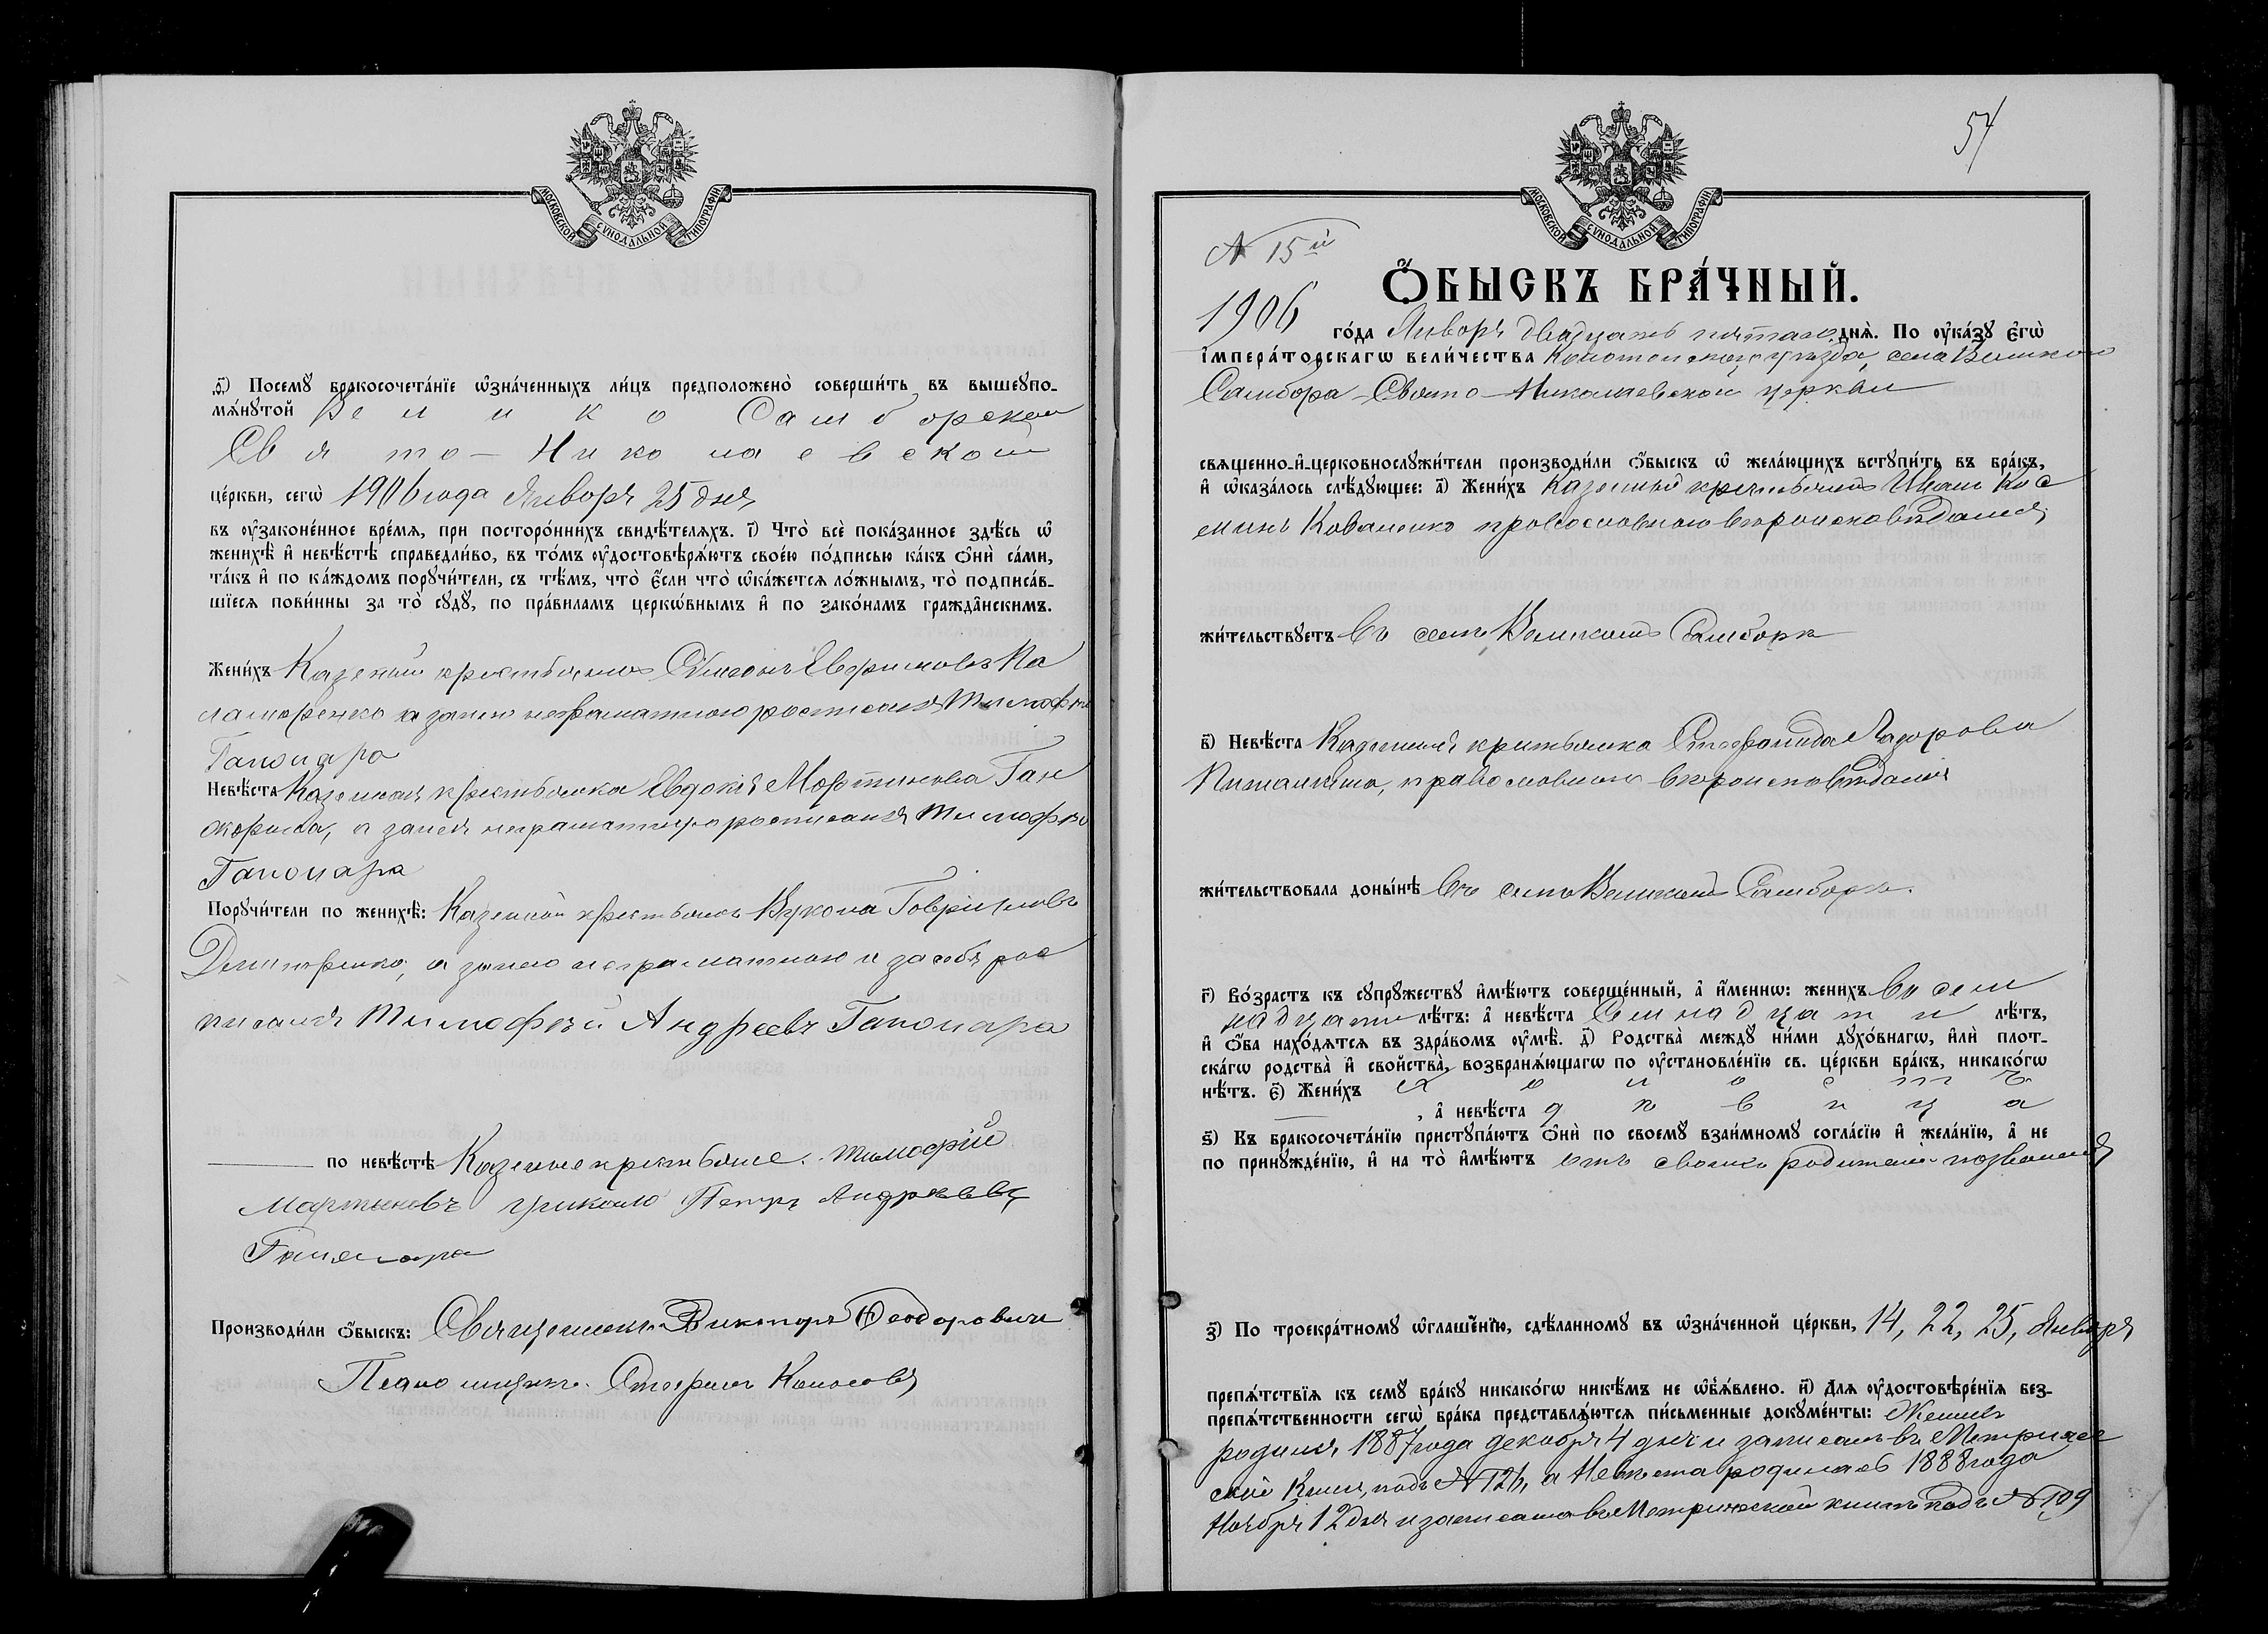 МОСКОВСКОЙ СУНОДАЛЬНОЙ ТИПОГРАФІИ
д҃) Посемꙋ бракосочета́нїе ѡ҆зна́ченныхъ ли́цъ предположено̀ соверши́ть въ вышеꙋпо-
мѧ́нꙋтой Велико Самборской
Свято-Николаевской
це́ркви, сегѡ̀ 1906 года Января 25 дня
въ ᲂу҆законе́нное вре́мѧ, при посторо́ннихъ свидѣ́телѧхъ. і҃) Что̀ всѐ пока́занное здѣ́сь ѡ҆
женихѣ̀ и҆ невѣ́стѣ справедли́во, въ то́мъ ᲂу҆достовѣрѧ́ютъ свое́ю по́дписью ка́къ ѻ҆нѝ са́ми,
та́къ и҆ по ка́ждомъ порꙋчи́тели, съ тѣ́мъ, что̀ є҆́сли что̀ ѡ҆ка́жетсѧ ло́жнымъ, то̀ подписа́в-
шїесѧ пови́нны за то̀ сꙋдꙋ̀, по пра́виламъ церкѡ́внымъ и҆ по зако́намъ гражда̑нскимъ.
Жени́хъ Казеной крестьянинъ Евфимовъ
а занею неграматною росписался Тимофей
Гапонара
Невѣ́ста Казенная крестьянка Евдокія Мартинова
а занея неграматную росписался Тимофей
Гапонара
Порꙋчи́тели по женихѣ̀: Казенной крестьянъ Вукола Говриловъ
а занею неграматною и засебя рос
писался Тимофей Андреевъ Гапонара
по невѣ́стѣ Казенные крестьяне. Тимофій
Мартыновъ Петръ Андреевъ
Гапонара
Производи́ли ѻ҆́быскъ: Священникъ Викторъ Ѳеодоровичъ
Псаломщикъ Стефанъ
54
МОСКОВСКОЙ СУНОДАЛЬНОЙ ТИПОГРАФІИ
N 15й
Ѻ҆́БЫСКЪ БРА́ЧНЫЙ.
1906 го́да Января двадцать пятаго днѧ̀. По ᲂу҆ка́зꙋ є҆гѡ̀
і҆мпера́торскагѡ вели́чества Конотопского уезда, села Великого
Самбора-Свято-Николаевской церкви
свѧщенно-и҆-церковнослꙋжи́тели производи́ли ѻ҆́быскъ ѡ҆ жела́ющихъ встꙋпи́ть въ бра́къ,
и҆ ѡ҆каза́лось слѣ́дꙋющее: а҃) Жени́хъ Казенный крестьянинъ Иванъ Кос
минъ Коваленко православного вероисповѣданія
жи́тельствꙋетъ въ селе Великомъ Самборе
в҃) Невѣ́ста Казенная крестьянка Стефанида Лазорова
православного вероисповѣданія
жи́тельствовала доны́нѣ въ селе Великомъ Самборе.
г҃) Во́зрастъ къ сꙋпрꙋжествꙋ и҆мѣ́ютъ соверше́нный, а҆ и҆́меннѡ: жени́хъ восем
надцати лѣ́тъ: а҆ невѣ́ста Семнадцати лѣ́тъ,
и҆ ѻ҆́ба нахо́дѧтсѧ въ здра́вомъ ᲂу҆мѣ̀. д҃) Родства̀ междꙋ ни́ми дꙋхо́внагѡ, и҆лѝ плот-
ска́гѡ родства̀ и҆ свойства̀, возбранѧ́ющагѡ по ᲂу҆становле́нїю св. це́ркви бра́къ, никако́гѡ
нѣ́тъ. є҃) Жени́хъ холостъ
, а҆ невѣ́ста девица
ѕ҃) Къ бракосочета́нїю пристꙋпа́ютъ ѻ҆нѝ по своемꙋ̀ взаи́мномꙋ согла́сїю и҆ жела́нїю, а҆ не
по принꙋжде́нїю, и҆ на то̀ и҆мѣ́ютъ отъ своихъ родителей позволенія
з҃) По троекра́тномꙋ ѡ҆глаше́нїю, сдѣ́ланномꙋ въ ѡ҆зна́ченной це́ркви, 14, 22, 25, Января
препѧ́тствїѧ къ семꙋ̀ бра́кꙋ никако́гѡ никѣ́мъ не ѡ҆б̾ѧ́влено. и҃) Длѧ ᲂу҆достовѣре́нїѧ без-
препѧ́тственности сегѡ̀ бра́ка представлѧ́ютсѧ пи́сьменные докꙋме́нты: Женихъ
родился 1887 года Декабря 4 дня и записанъ въ Метричес
кой Книге, подъ N 126, а Невеста родилась 1888 года
Ноября 12 дня и записана во Метрической книге подъ N 109